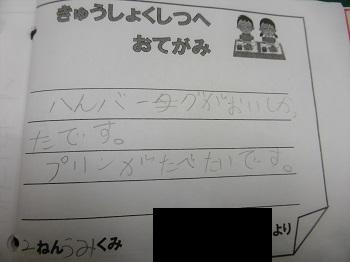 きゅうしょくしつへ
おてがみ
ハンバーグがおいしか
たです。
プリンがたべたいです。
より
2ねんうみくみ